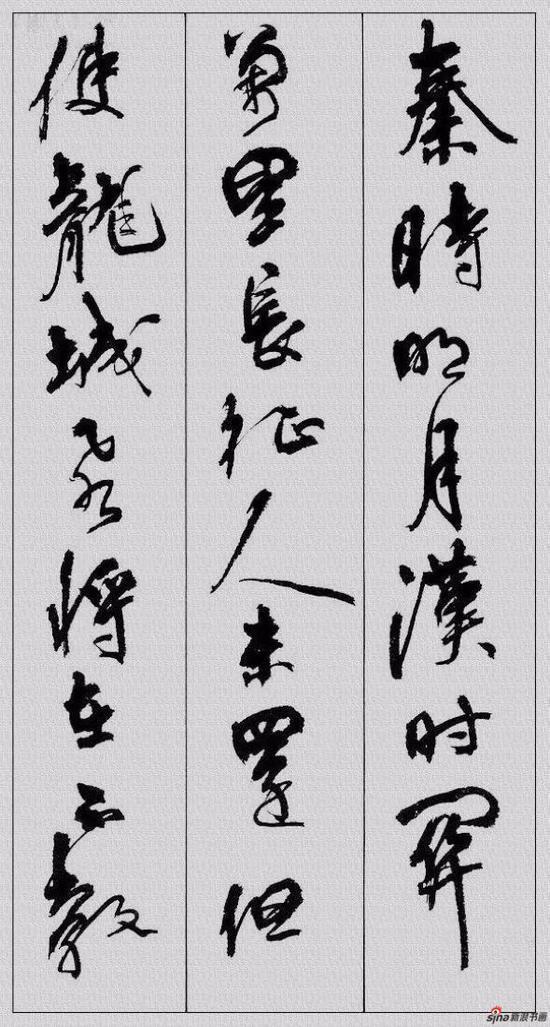 秦時明月漢时關
萬里長征人未還但
使龍城飛將在不教
sina新浪书画